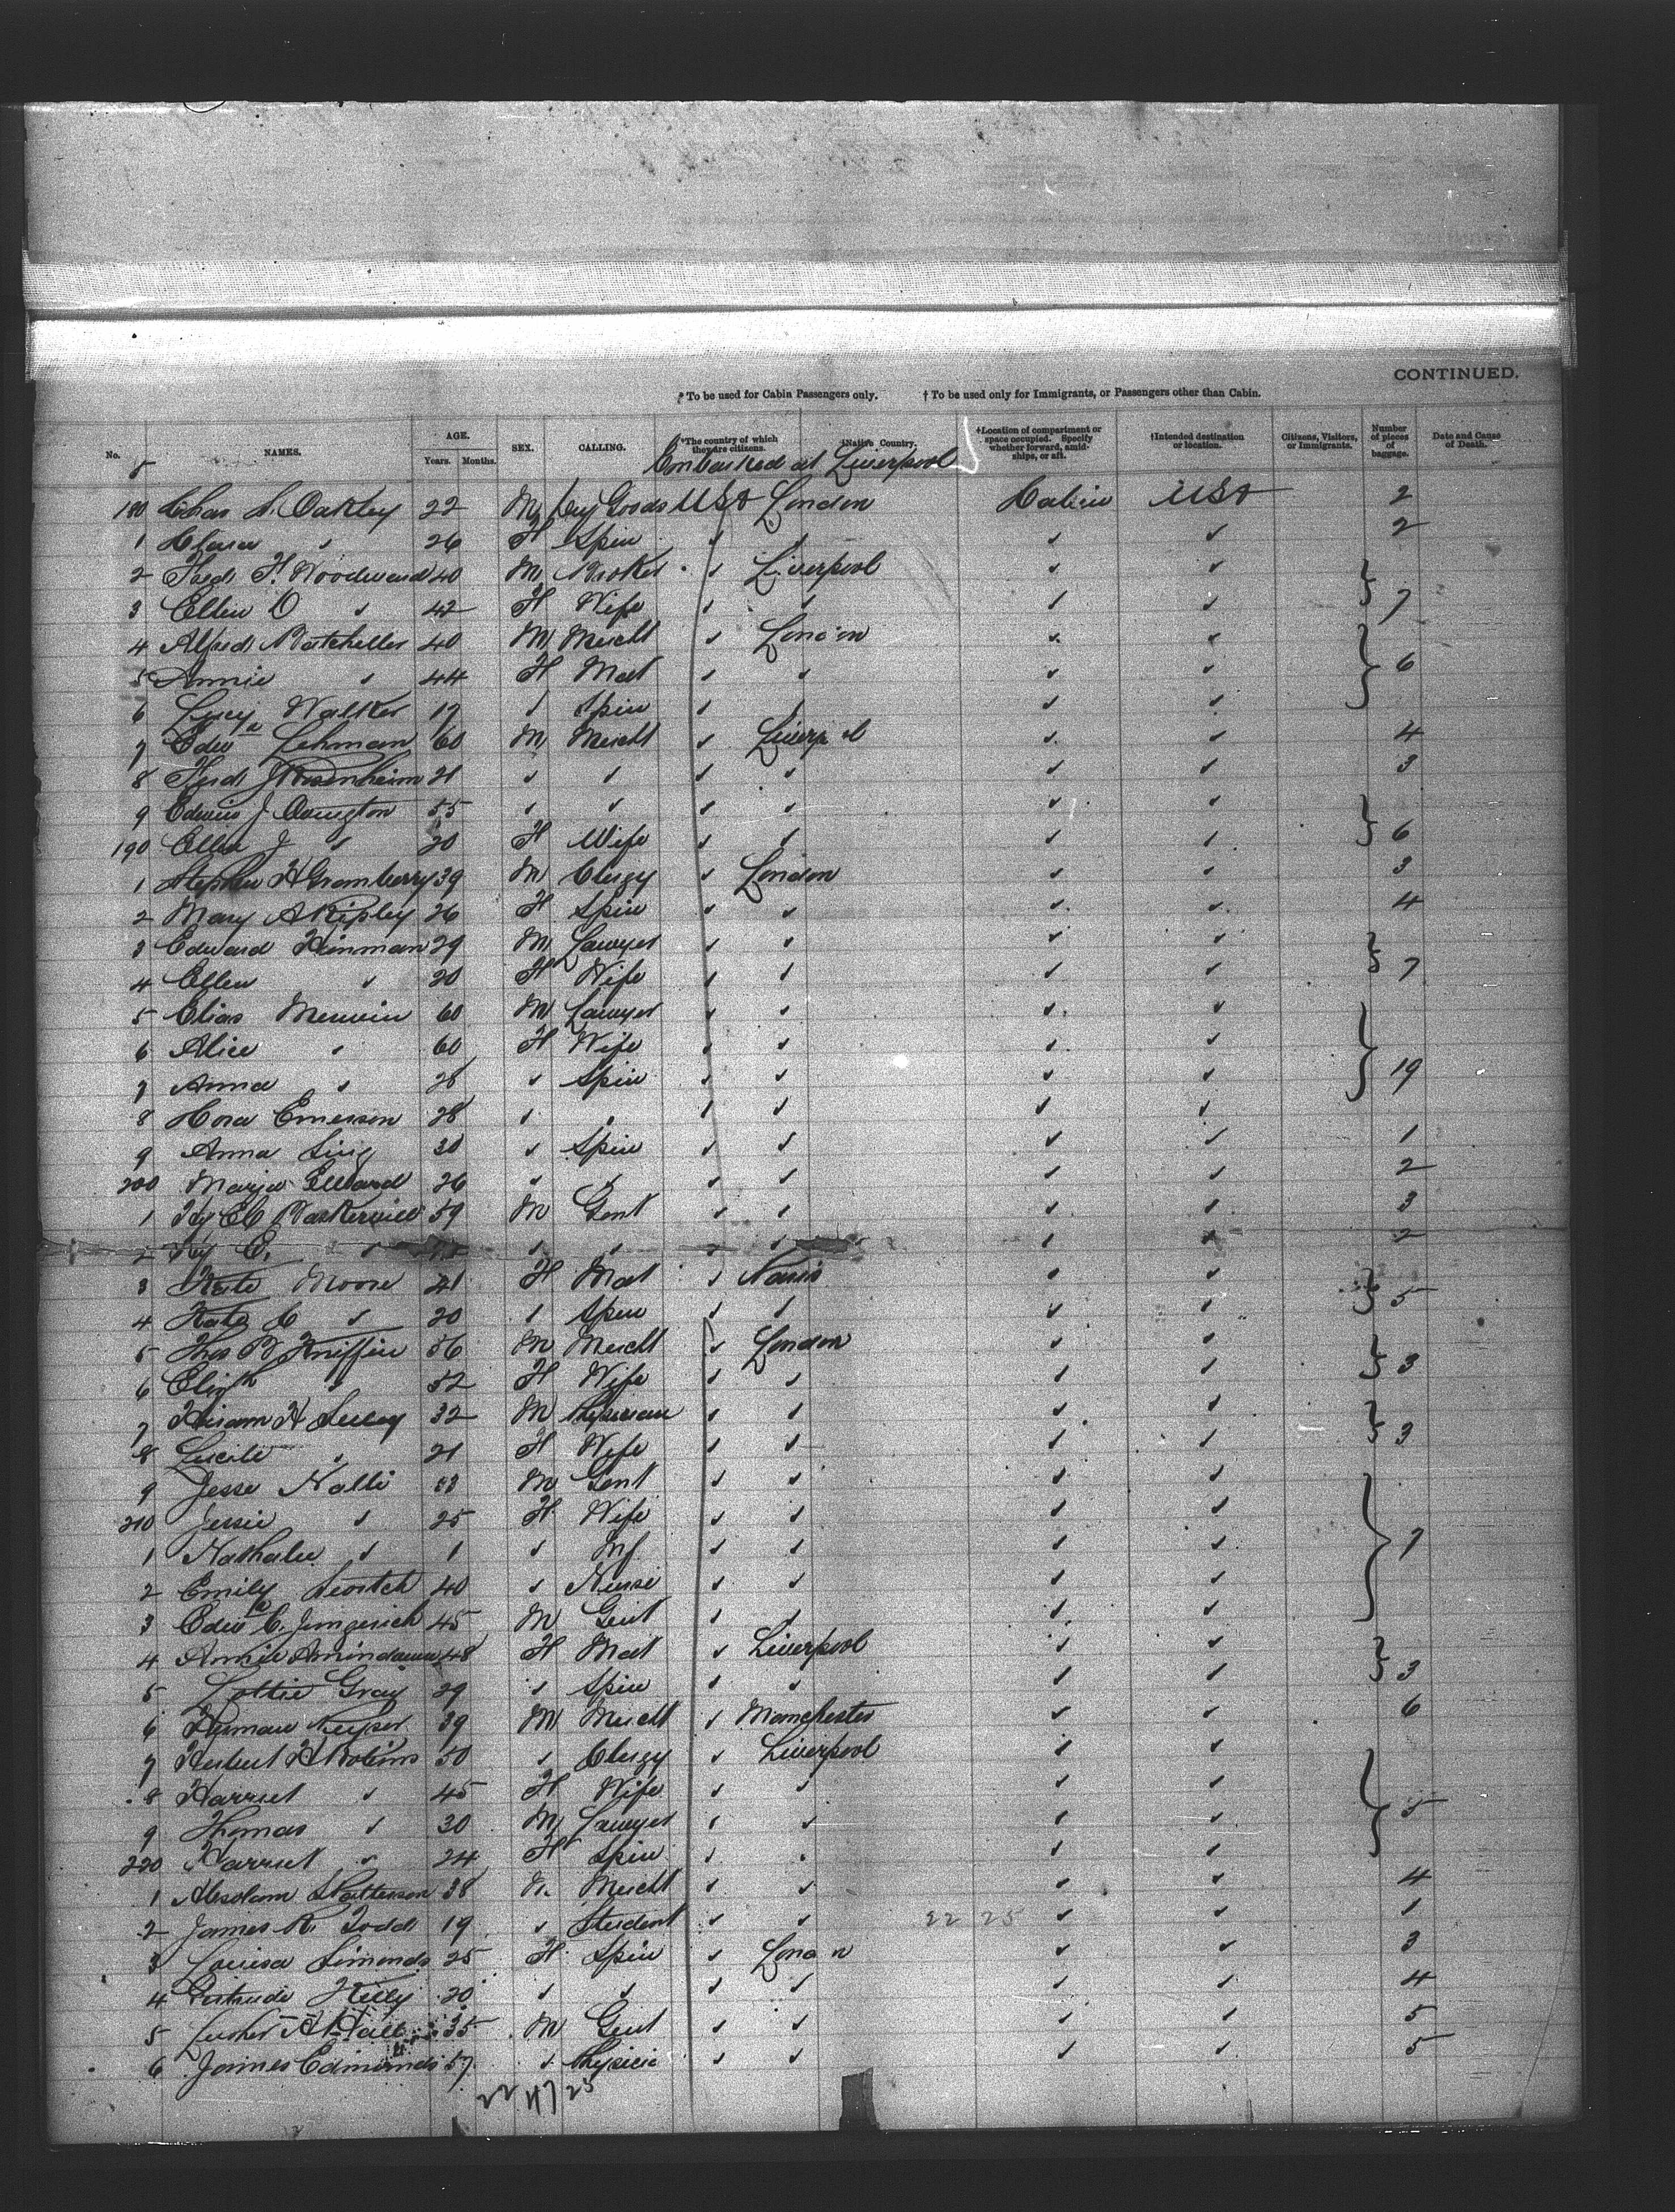 CONTINUED.
* To be used for Cabin Passengers only. † To be used only for Immigrants, or Passengers other than Cabin.
No. NAMES. AGE. Years. Months. SEX. CALLING. *The country of which they are citizens. †Native Country. †Location of compartment or space occupied. Specify whether forward, amidships, or aft. †Intended destination or location. Citizens, Visitors, or Immigrants. Number of pieces of baggage. Date and Cause of Death.
Embarked at Liverpool
180 Chas S. Oakley 22 M Dry Goods USA London Cabin USA 2
1 Clara " 26 F Spin " " " " 2
2 Fred F. Woodward 40 M Broker " Liverpool " "
3 Ellen O " 42 F Wife " " " " } 7
4 Alfred Batcheller 40 M Mercht " London " "
5 Annie " 44 F Mat " " " " } 6
6 Lucy Walker 17 " Spin " " " "
7 Edwd Lehman 60 M Mercht " Liverpool " " 4
8 Ferd J Rosenheim 21 " " " " " " 3
9 Edwin J Ovington 55 " " " " " "
190 Ella J " 20 F Wife " " " " } 6
1 Stephen H Granberry 39 M Clergy " London " " 3
2 Mary A Ripley 26 F Spin " " " " 4
3 Edward Hinman 29 M Lawyer " " " "
4 Ellen " 20 F Wife " " " " } 7
5 Elias Merwin 60 M Lawyer " " " "
6 Alice " 60 F Wife " " " "
7 Anna " 28 " Spin " " " " } 19
8 Cora Emerson 28 " " " " " "
9 Anna King 30 " Spin " " " " 1
200 26 " " " " " " 2
1 Hy C C Baskerville 59 M Gent " " " " 3
2 Hy E. " " " " " " " 2
3 Kate Moore 41 F Mat " Paris " "
4 Kate C " 20 " Spin " " " " } 5
5 Thos B Kniffin 56 M Mercht " London " "
6 Elizth " 52 F Wife " " " " } 3
7 Hiram H Seeley 32 M Physician " " " "
8 Lucile " 21 F Wife " " " " } 3
9 Jesse M Gent " " " "
210 Jessie " 25 F Wife " " " "
1 Nathalie " 1 " Inf " " " " } 7
2 Emily 40 " Nurse " " " "
3 Edwd C. 45 M Gent " " " "
4 Annie 48 F Mat " Liverpool " "
5 Lottie Gray 29 " Spin " " " " } 3
6 Herman Keyser 39 M Mercht " Manchester " " 6
7 Herbert H Robins 50 " Clergy " Liverpool " "
8 Harriet " 45 F Wife " " " "
9 Thomas " 30 M Lawyer " " " " } 5
220 Harriet " 24 F Spin " " " "
1 Absolam Patterson 38 M Mercht " " " " 4
2 James R. Todd 19 " Student " " 22 25 " " 1
3 Louisa Simonds 25 F Spin " London " " 3
4 Gertrude 20 " " " " " " 4
5 Luther A Hall 35 M Gent " " " " 5
6 James Edmunds 57 " Physicia " " " " 5
22 47 25